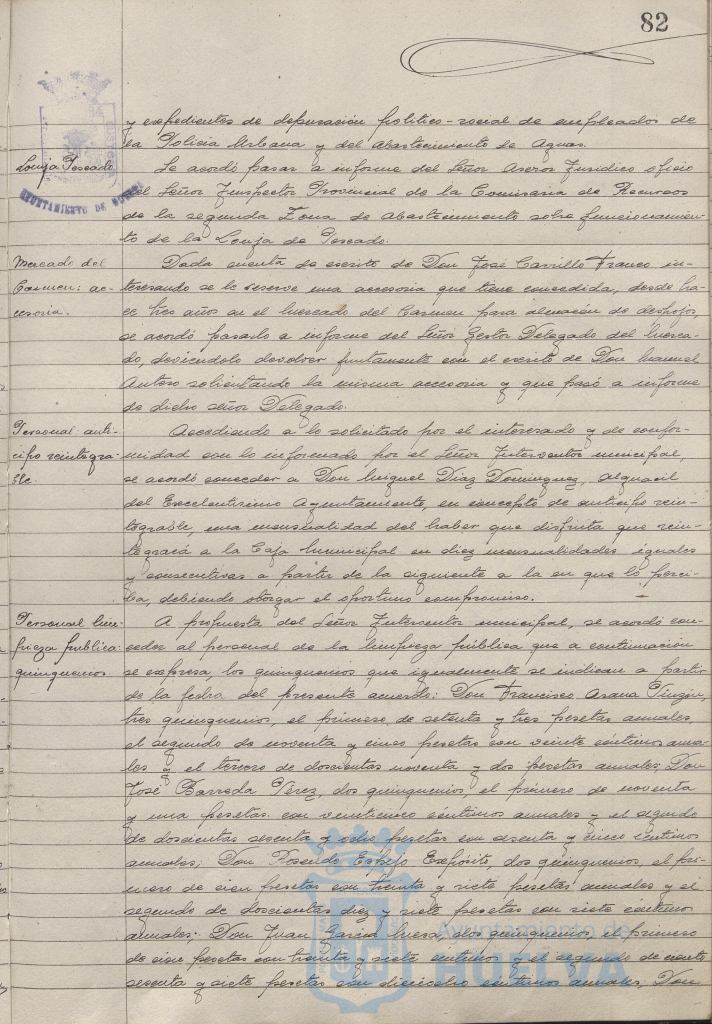 82
y expedientes de depuración político-social de empleados de
la Policía Urbana y del Abastecimiento de Aguas.
Lonja Pescado
Se acordó pasar a informe del Señor Asesor Jurídico oficio
del Señor Inspector Provincial de la Comisaría de Recursos
AYUNTAMIENTO DE HUELVA
de la segunda Zona de Abastecimiento sobre funcionamien-
to de la Lonja de Pescado.
Mercado del
Carmen: ac-
cesoria.
Dada cuenta de escrito de Don José Carrillo Franco in-
teresando se le reserve una accesoria que tiene concedida, desde ha-
ce tres años en el Mercado del Carmen para almacén de despojos,
se acordó pasarlo a informe del Señor Gestor Delegado del Merca-
do, deviéndolo devolver juntamente con el escrito de Don Manuel
solicitando la misma accesoria y que pasó a informe
de dicho señor Delegado.
Personal: anti-
cipo reintegra-
ble.
Accediendo a lo solicitado por el interesado y de confor-
midad con lo informado por el Señor Interventor municipal,
se acordó conceder a Don Miguel Díaz Domínguez, Alguacil
del Excelentísimo Ayuntamiento, en concepto de anticipo rein-
tegrable, una mensualidad del haber que disfruta que rein-
tegrará a la Caja Municipal en diez mensualidades iguales
y consecutivas a partir de la siguiente a la en que lo perci-
ba, debiendo otorgar el oportuno compromiso.
Personal lim-
pieza pública:
quinquenios
A propuesta del Señor Interventor municipal, se acordó con-
ceder al personal de la limpieza pública que a continuación
se expresa, los quinquenios que igualmente se indican a partir
de la fecha del presente acuerdo: Don Francisco Arana Pinzón,
tres quinquenios, el primero de setenta y tres pesetas anuales,
el segundo de noventa y cinco pesetas con veinte céntimos anua-
les y el tercero de doscientas noventa y dos pesetas anuales; Don
José Barreda Pérez, dos quinquenios, el primero de noventa
y una pesetas con veinticinco céntimos anuales y el segundo
de doscientas sesenta y ocho pesetas con sesenta y cinco céntimos
anuales; Don Rosendo Espejo Expósito, dos quinquenios, el pri-
mero de cien pesetas con treinta y siete pesetas anuales y el
segundo de doscientas diez y siete pesetas con siete céntimos
anuales; Don Juan García dos quinquenios, el primero
de cien pesetas con treinta y siete céntimos y el segundo de ciento
sesenta y siete pesetas con dieciocho céntimos anuales, Don
Ayuntamiento de
HUELVA